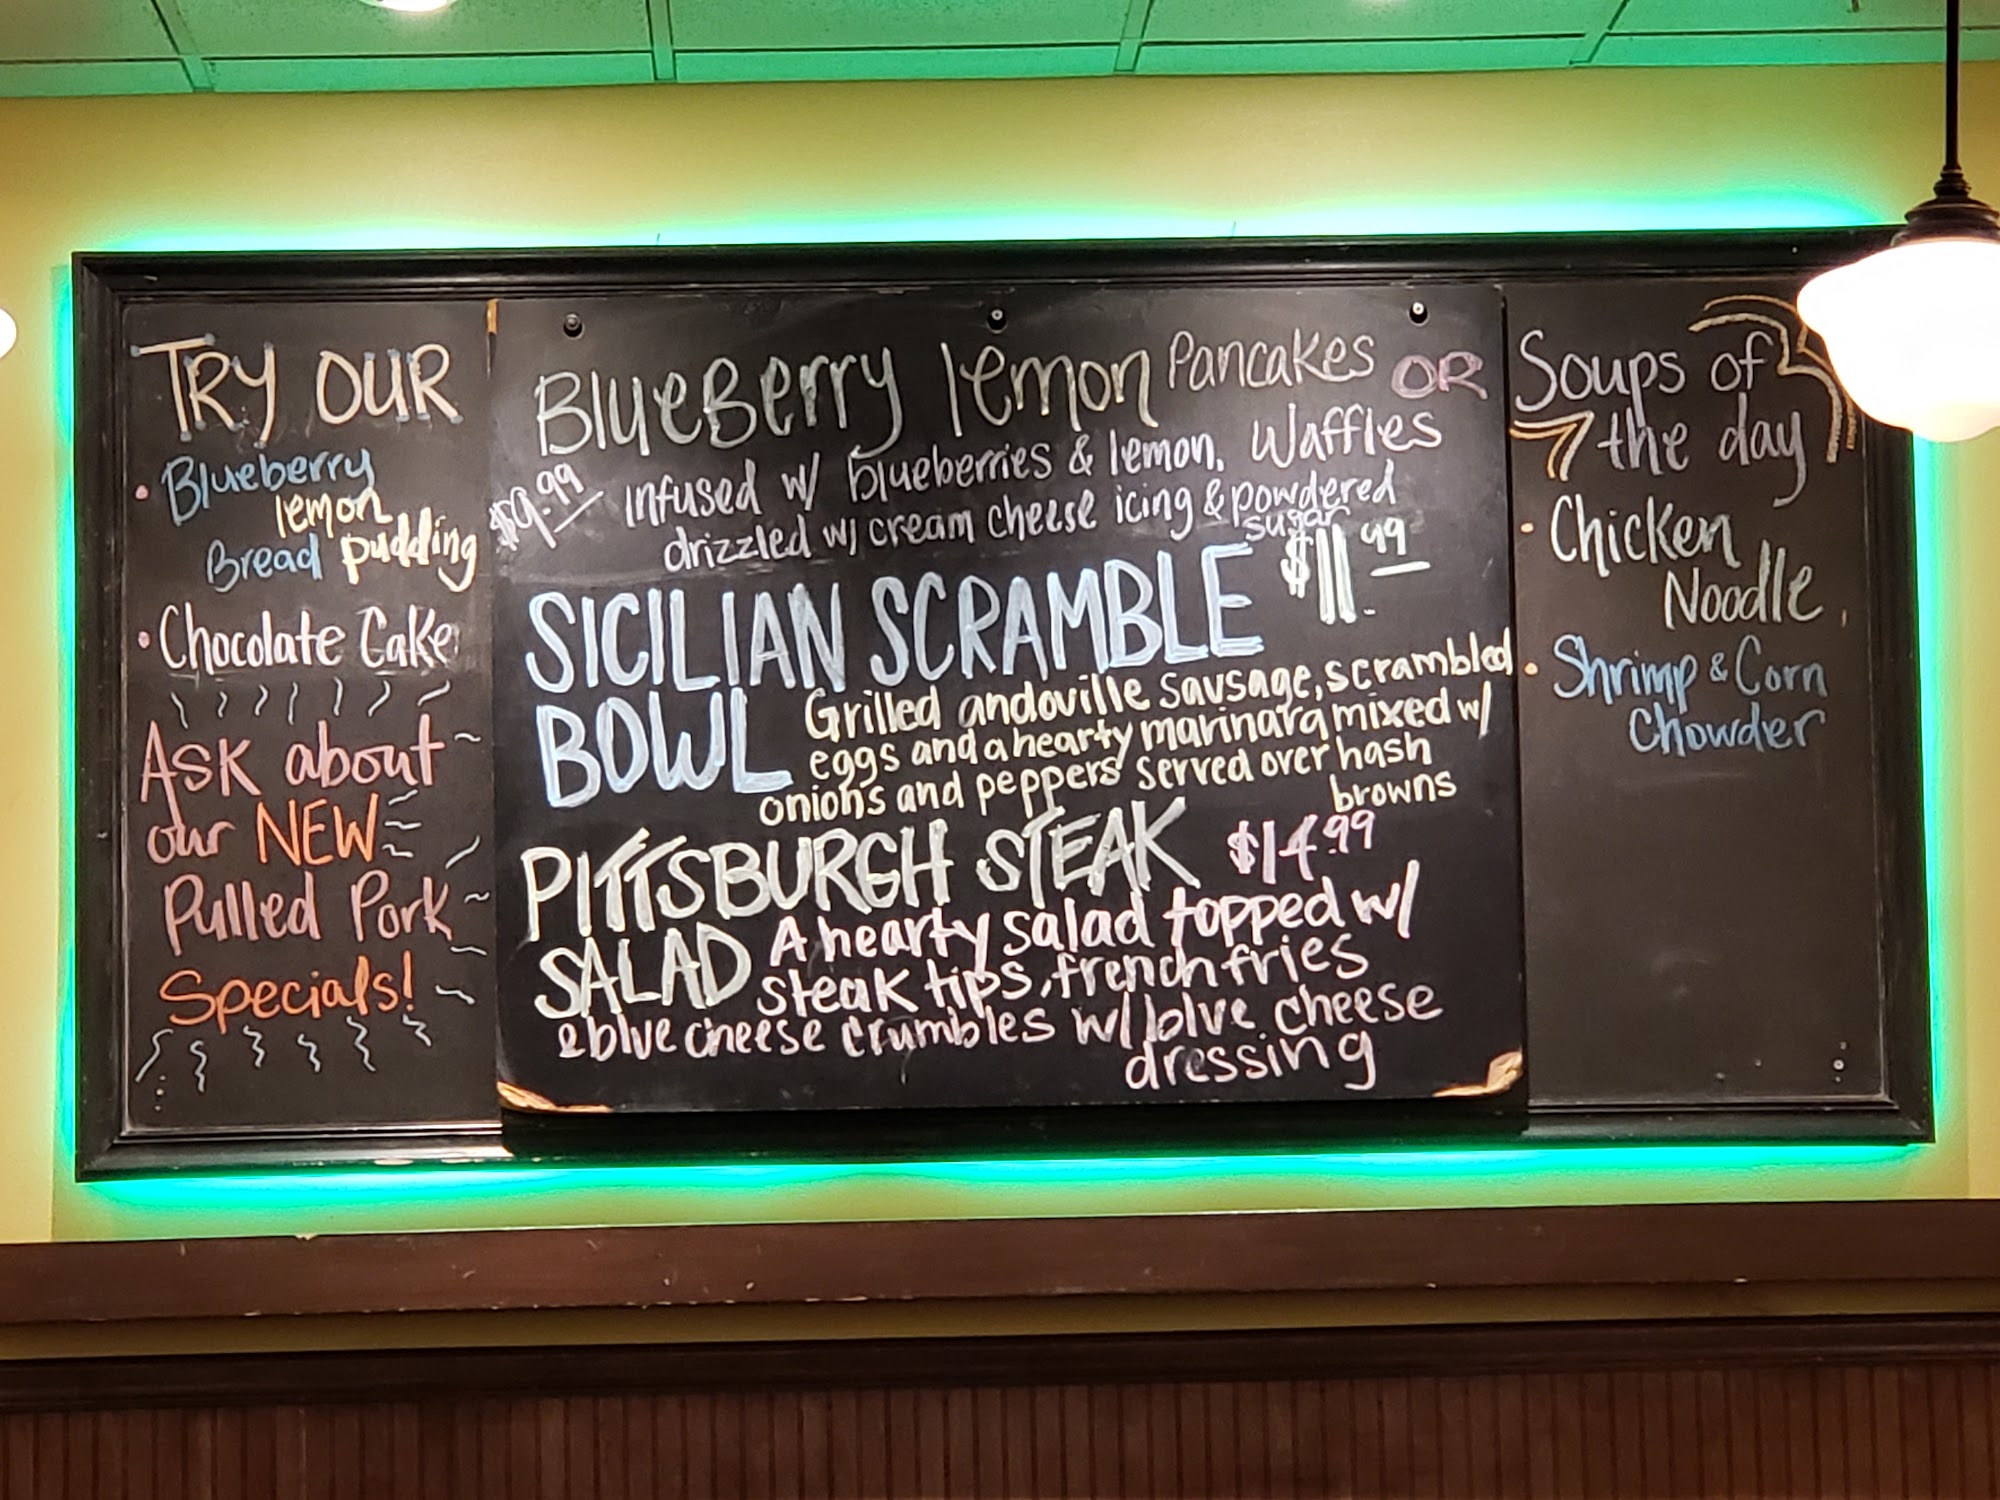 TRY OUR
• Blueberry
lemon
Bread pudding
• Chocolate Cake
Ask about
our NEW
Pulled Pork
Specials!
BlueBerry lemon Pancakes OR
Waffles
$9.99 Infused w/ blueberries & lemon,
drizzled w/ cream cheese icing & powdered
sugar
SICILIAN SCRAMBLE $11.99
BOWL Grilled andoville sausage, scrambled
eggs and a hearty marinara mixed w/
onions and peppers served over hash
browns
PITTSBURGH STEAK $14.99
SALAD A hearty salad topped w/
steak tips, french fries
& blue cheese crumbles w/ blue cheese
dressing
Soups of
the day
• Chicken
Noodle
• Shrimp & Corn
Chowder